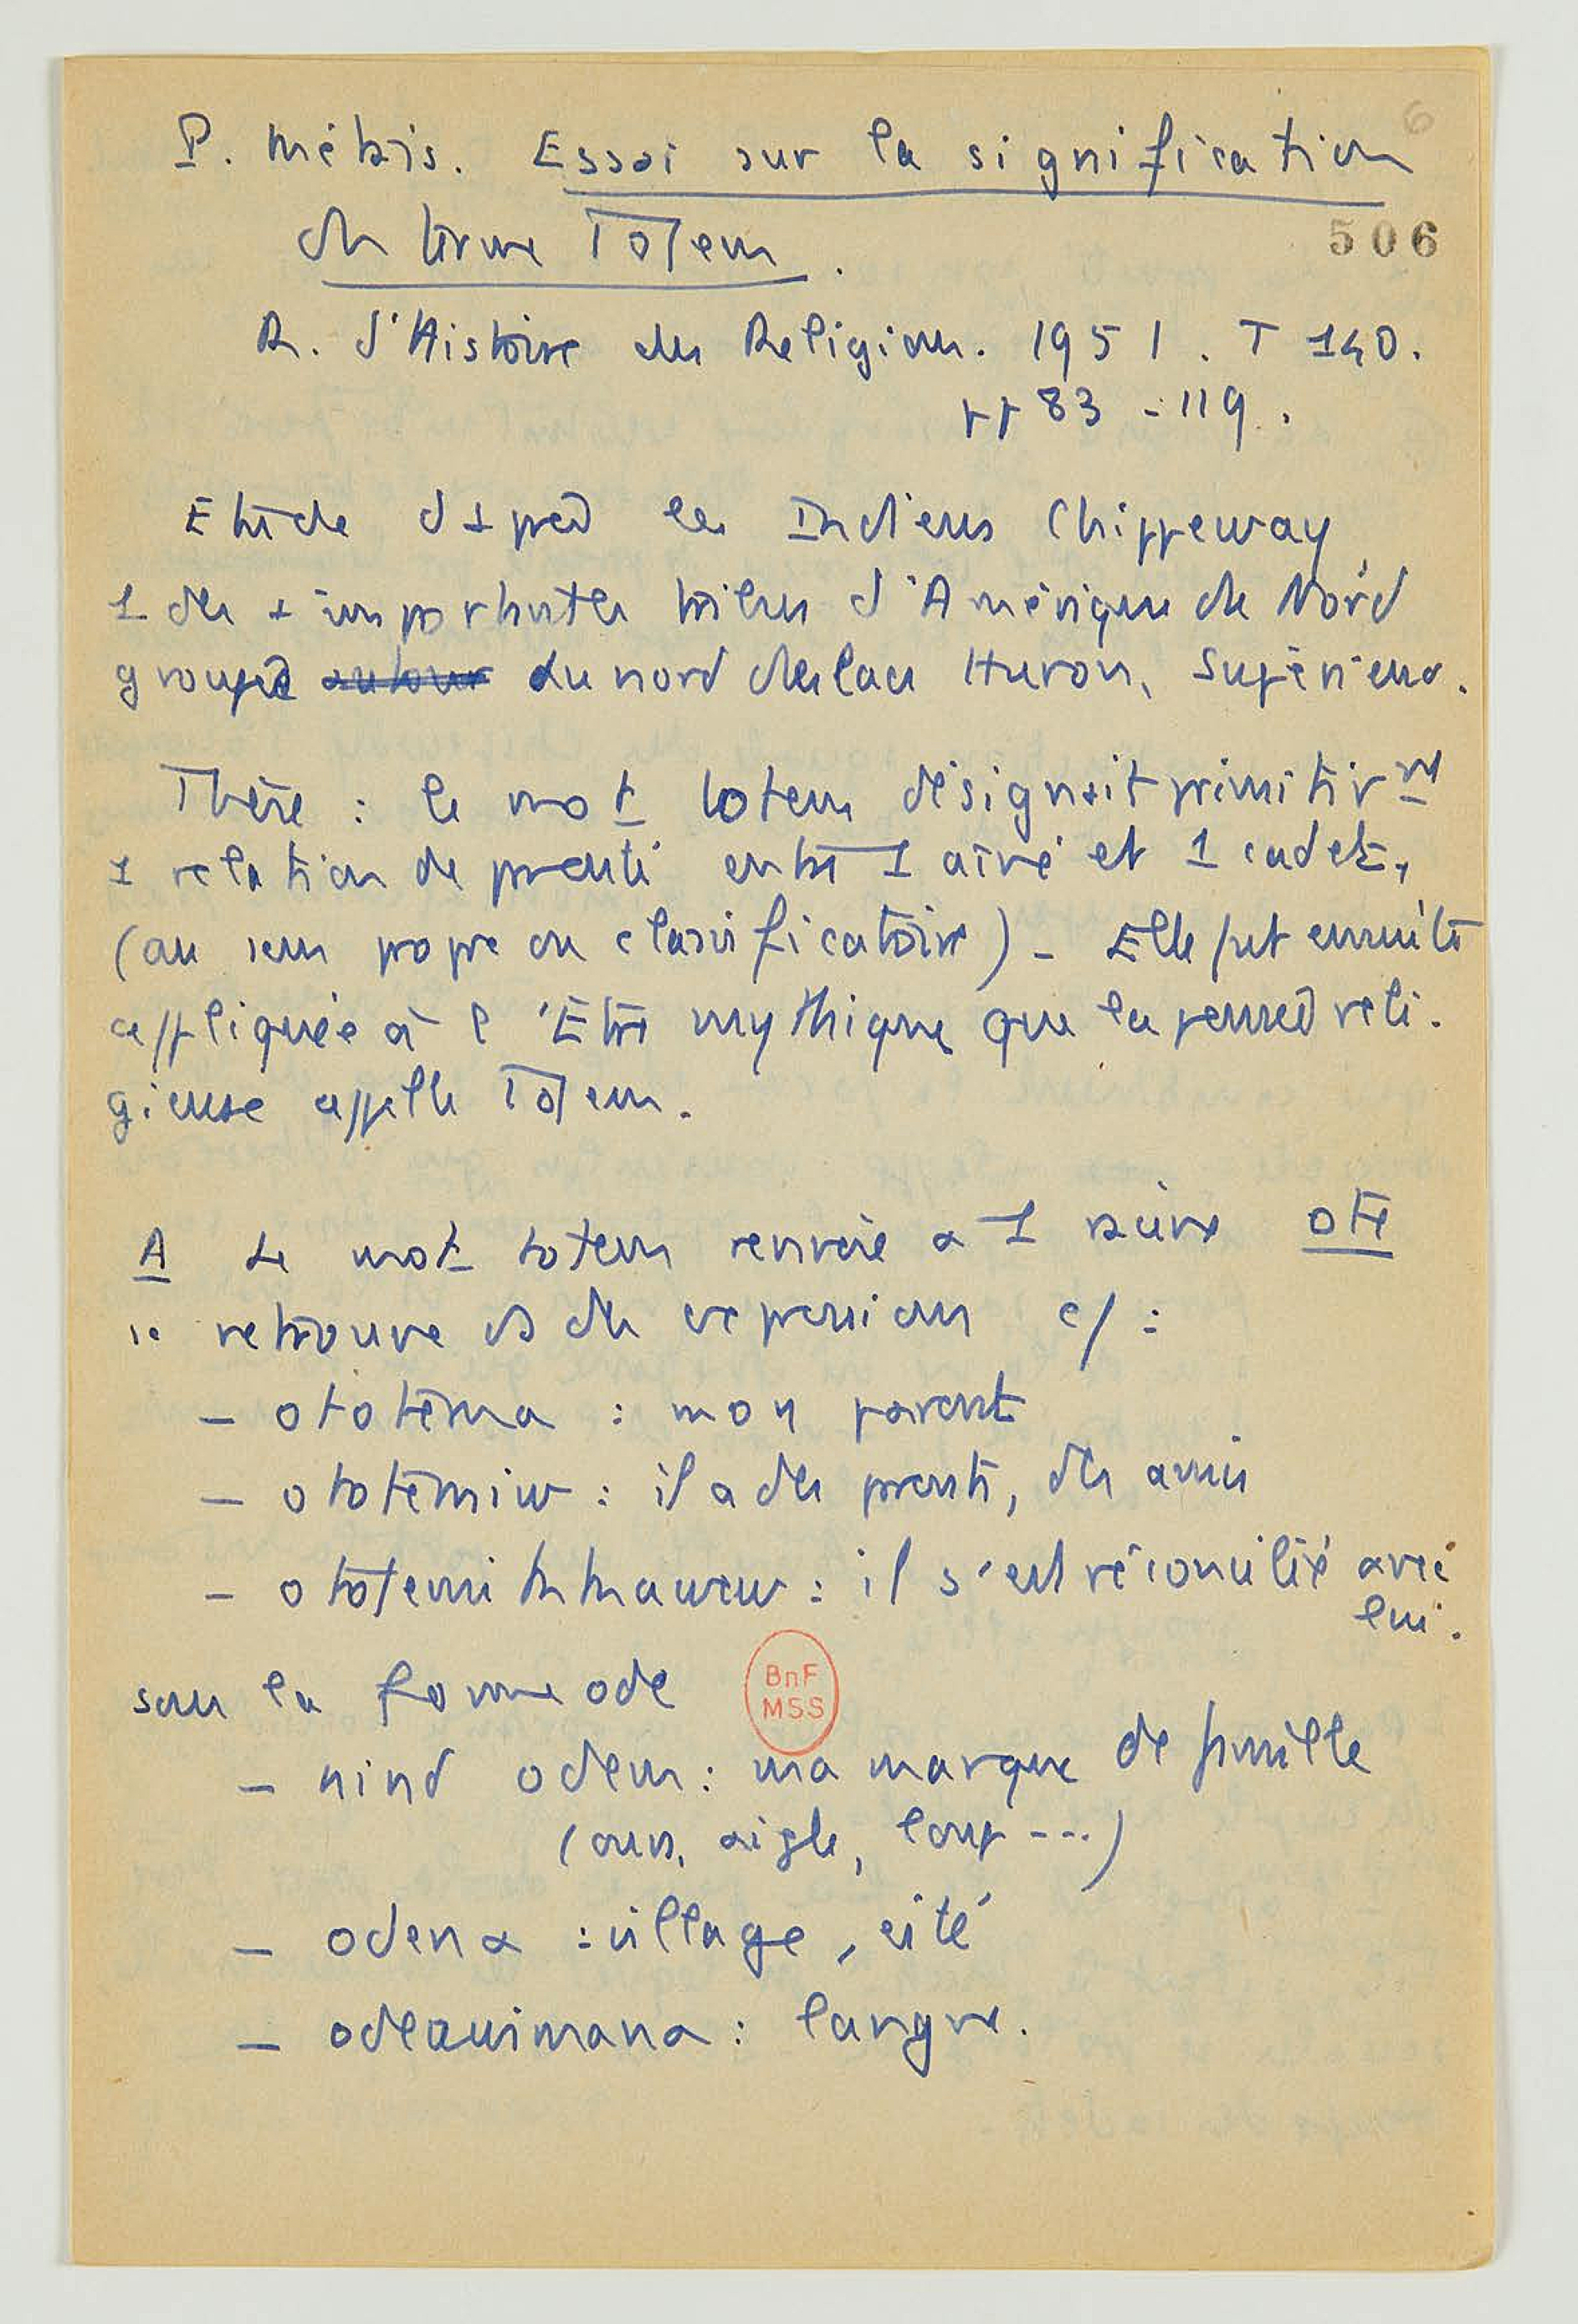 6
P. Métais. Essai sur la signification
du terme Totem.
506
R. d'Histoire des Religions. 1951. T 140.
pp 83 - 119.
Etude d'après les Indiens Chippeway,
1 des + importantes tribus d'Amérique du Nord
groupée autour du nord des lacs Huron, Supérieur.
Thèse : le mot totem désignait primitivnt
1 relation de parenté entre 1 aîné et 1 cadet,
(au sens propre ou classificatoire) - Elle fut ensuite
appliquée à l'Etre mythique que la pensée reli-
gieuse appelle Totem.
A Le mot totem renvoie à 1 racine ote
se retrouve ds des expressions c/ :
- ototema : mon parent
- ototēmiw : il a des parents, des amis
: il s'est réconcilié avec
lui.
sous la forme ode
BnF
MSS
- nind odem : ma marque de famille
(ours, aigle, loup ---)
- odena : village, cité
: langue.